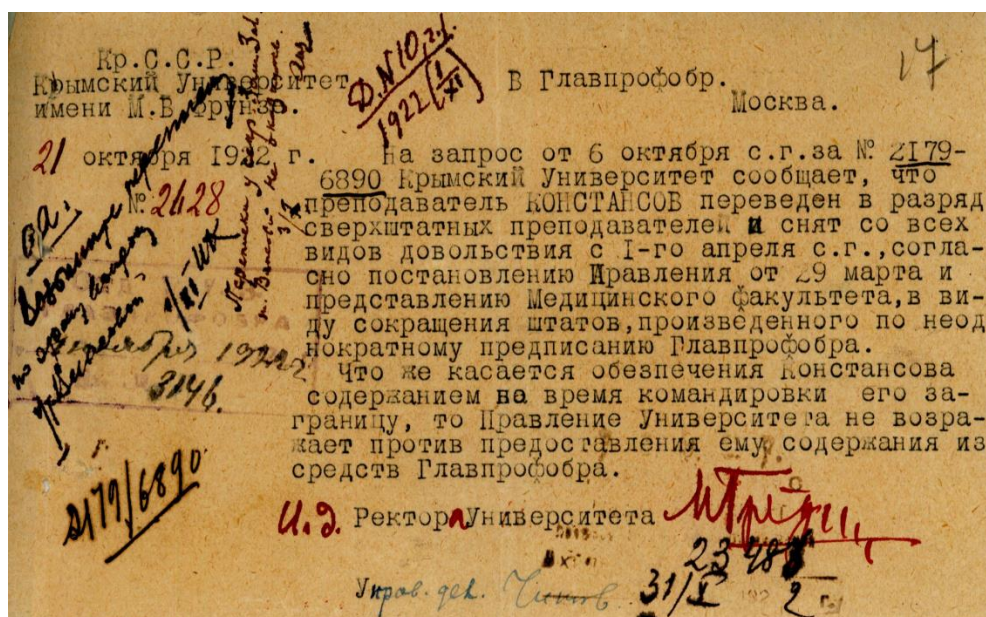 Кр.С.С.Р.
Крымский Университет
имени М.В.Фрунзе.
Д.N10,г.
1922 (1/XI)
17
В Главпрофобр.
Москва.
21 октября 1922 г.
№ 2428
На запрос от 6 октября с.г.за № 2179-
6890 Крымский Университет сообщает, что
преподаватель КОНСТАНСОВ переведен в разряд
сверхштатных преподавателей и снят со всех
видов довольствия с I-го апреля с.г.,согла-
сно постановлению Правления от 29 марта и
представлению Медицинского факультета,в ви-
ду сокращения штатов,произведенного по неод
нократному предписанию Главпрофобра.
Что же касается обеспечения Констансова
содержанием во время командировки его за-
границу, то Правление Университета не возра-
жает против предоставления ему содержания из
средств Главпрофобра.
Переписки у
не
3146.
2179/6890
И.д. Ректора Университета
Управ. дел.
23 48
31/X 192 2 г.